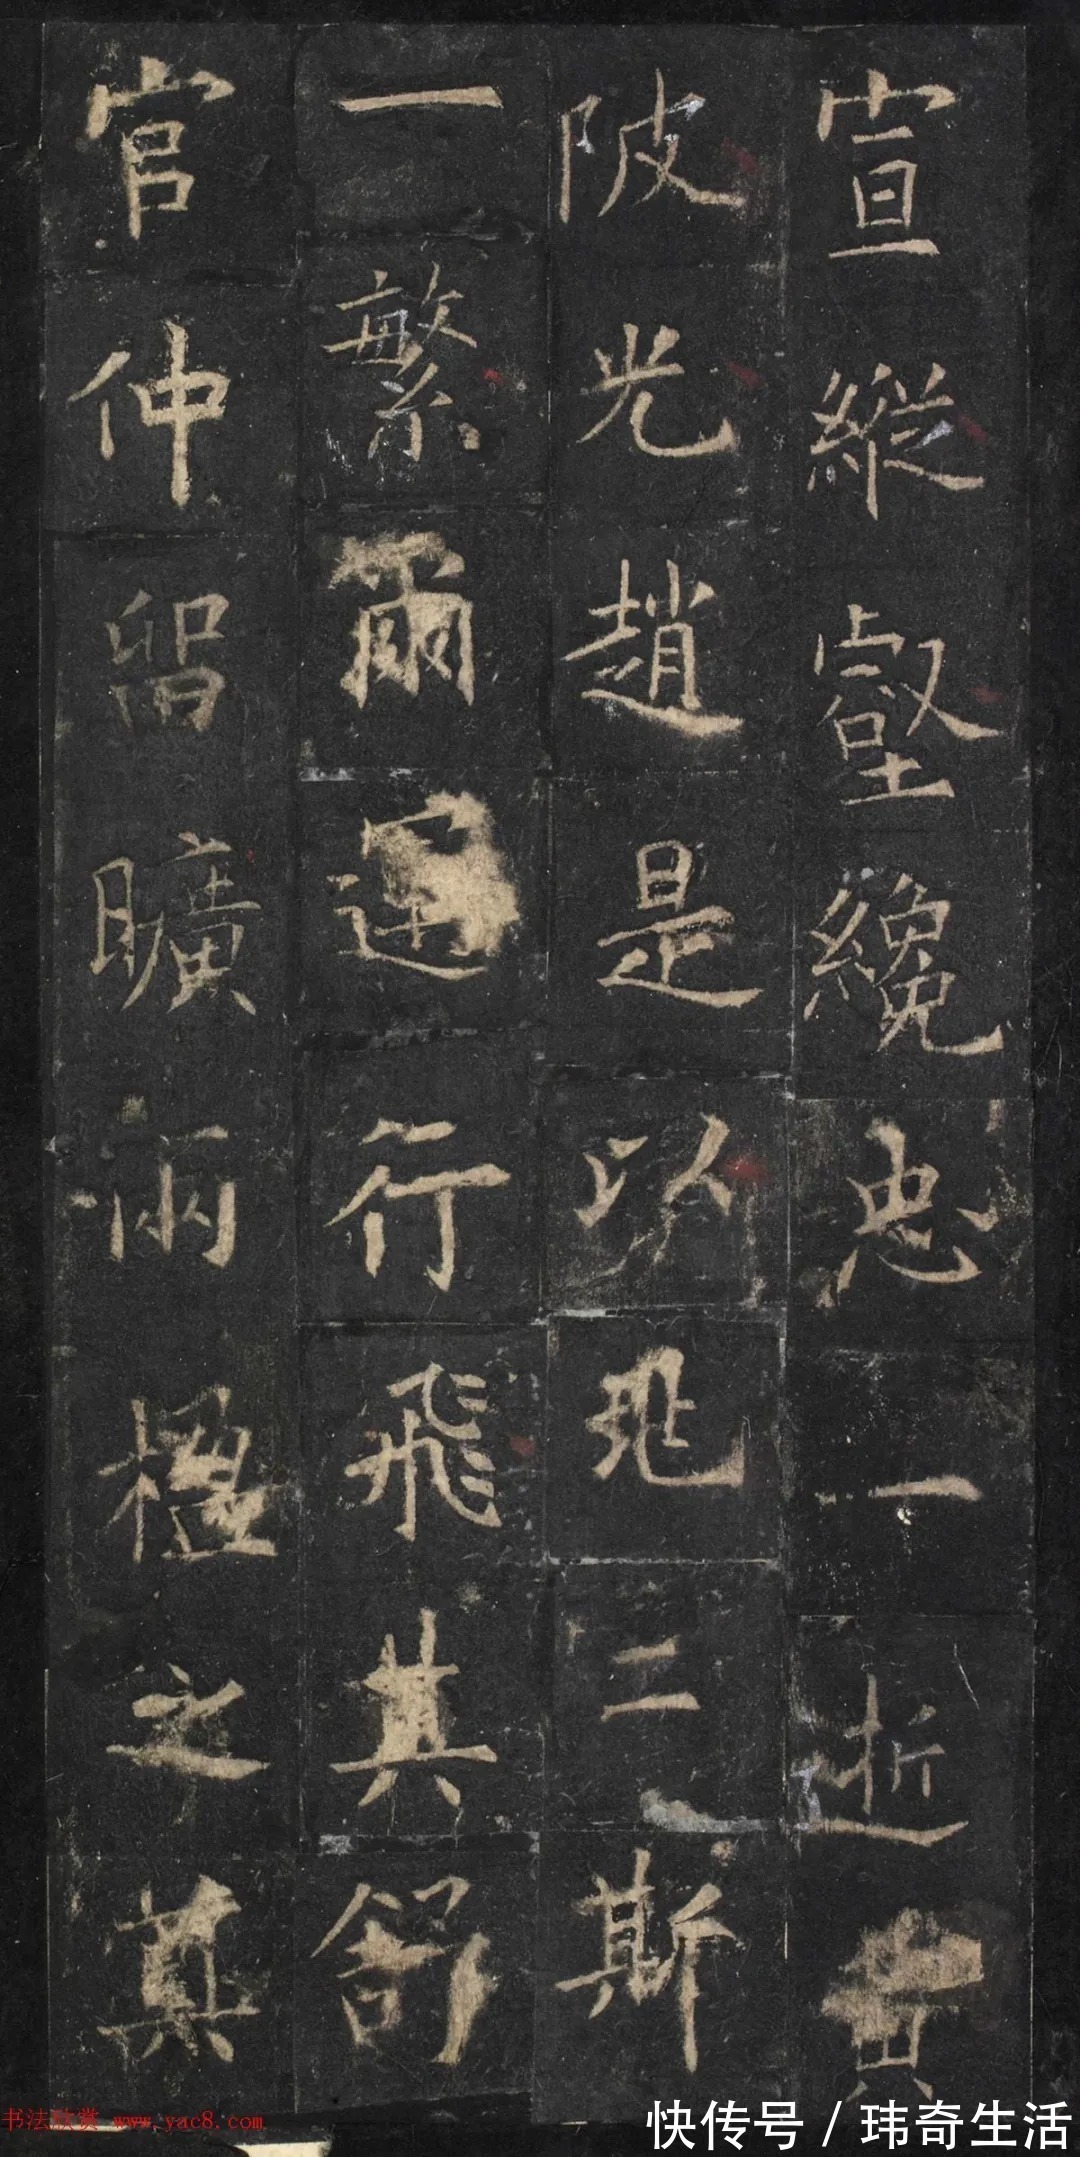 宣縱壑纔忠一逝
陂光趙是以二斯
一繁爾行飛其舒
官仲留曠兩楹之奠
书法欣赏 www.yac8.com
快传号 / 玮奇生活